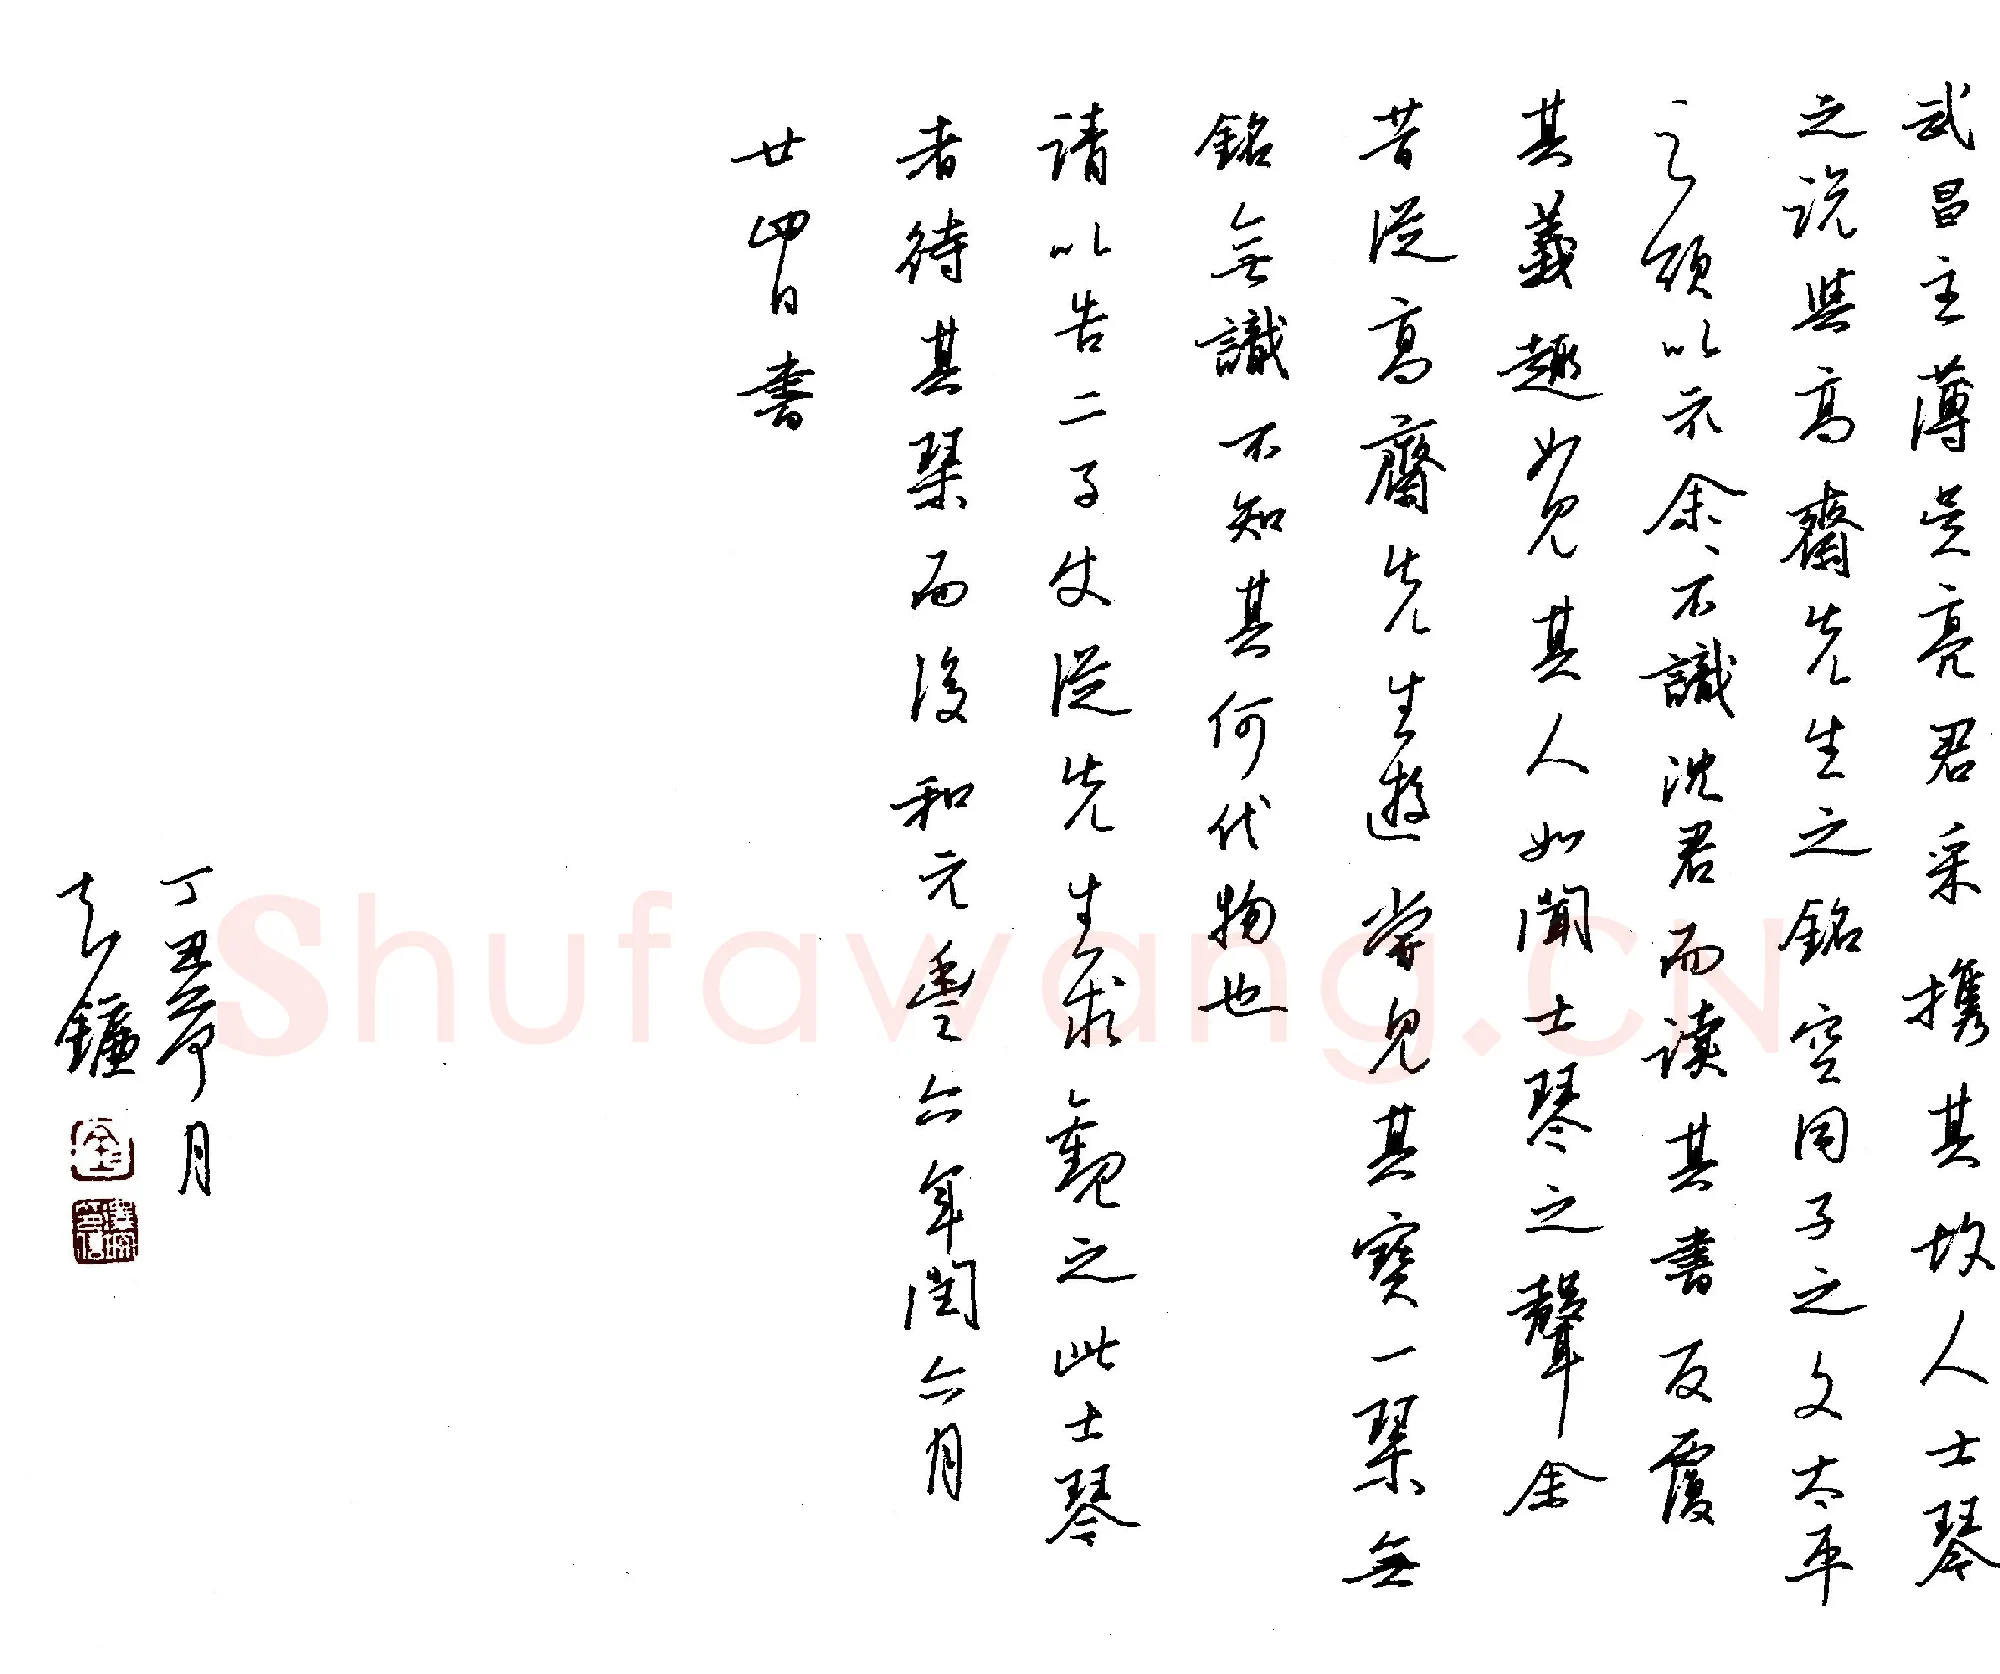 武昌主薄吴亮君采攜其故人士琴
之说與高齋先生之銘空同子之文太平
之頌以示余、不識沈君而读其書反覆
其義趣如見其人如聞士琴之聲余
昔從高齋先生遊嘗見其寶一琹無
銘無識不知其何代物也
請以告二子使從先生求觀之此士琴
者待其琹而後和元豐六年閏六月
廿四日書
丁丑荷月
Shufawang.CN